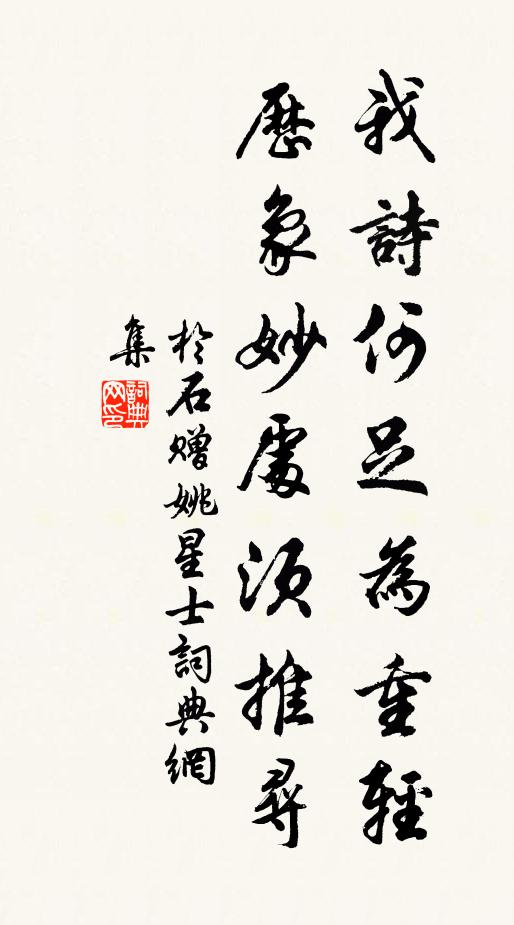 我詩何足為重輕
歷象妙處須推尋
於石贈姚星士詞典網
集
詞典
网印